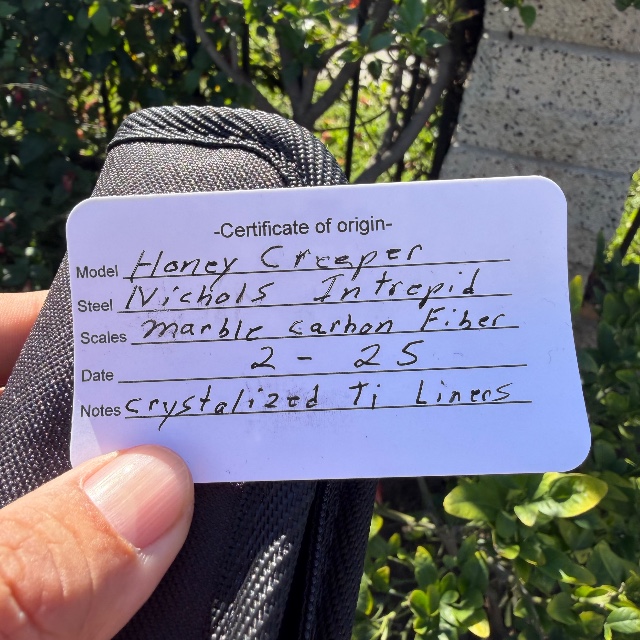 -Certificate of origin-
Model Honey Creeper
Steel Nichols Intrepid
Scales Marble carbon Fiber
Date 2 - 25
Notes Crystalized Ti Liners